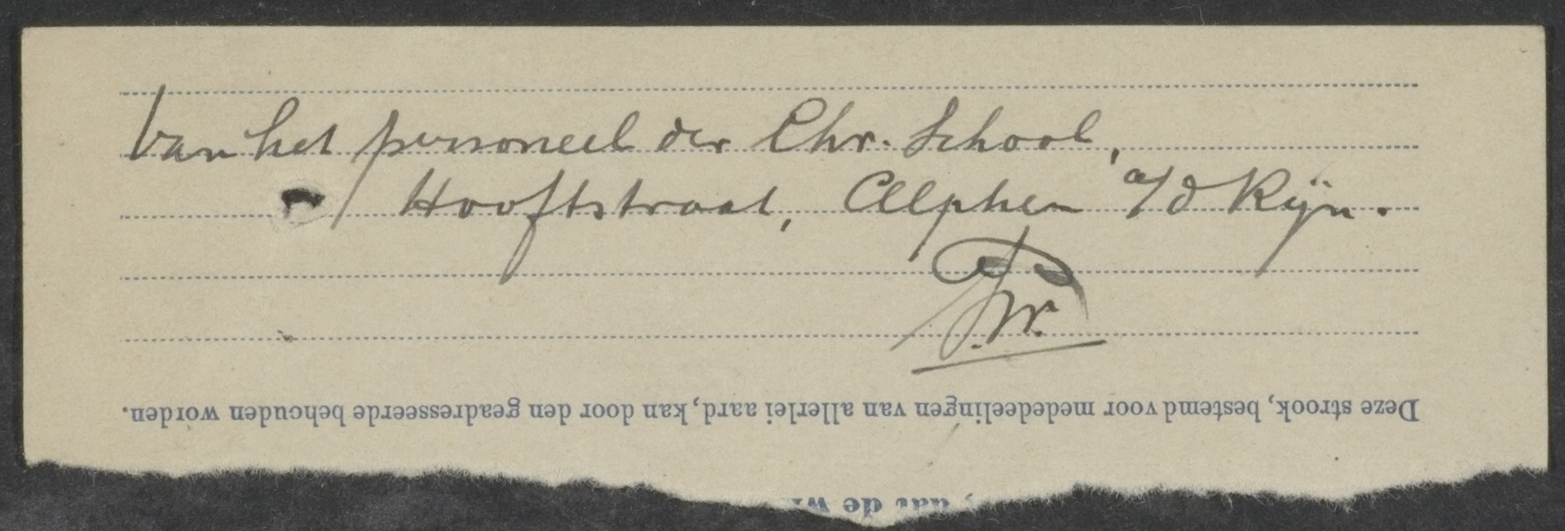 Van het personeel der Chr. School,
Hooftstraat, Alphen a/d Rijn.
Deze strook, bestemd voor mededeelingen van allerlei aard, kan door den geadresseerde behouden worden.
, dat de